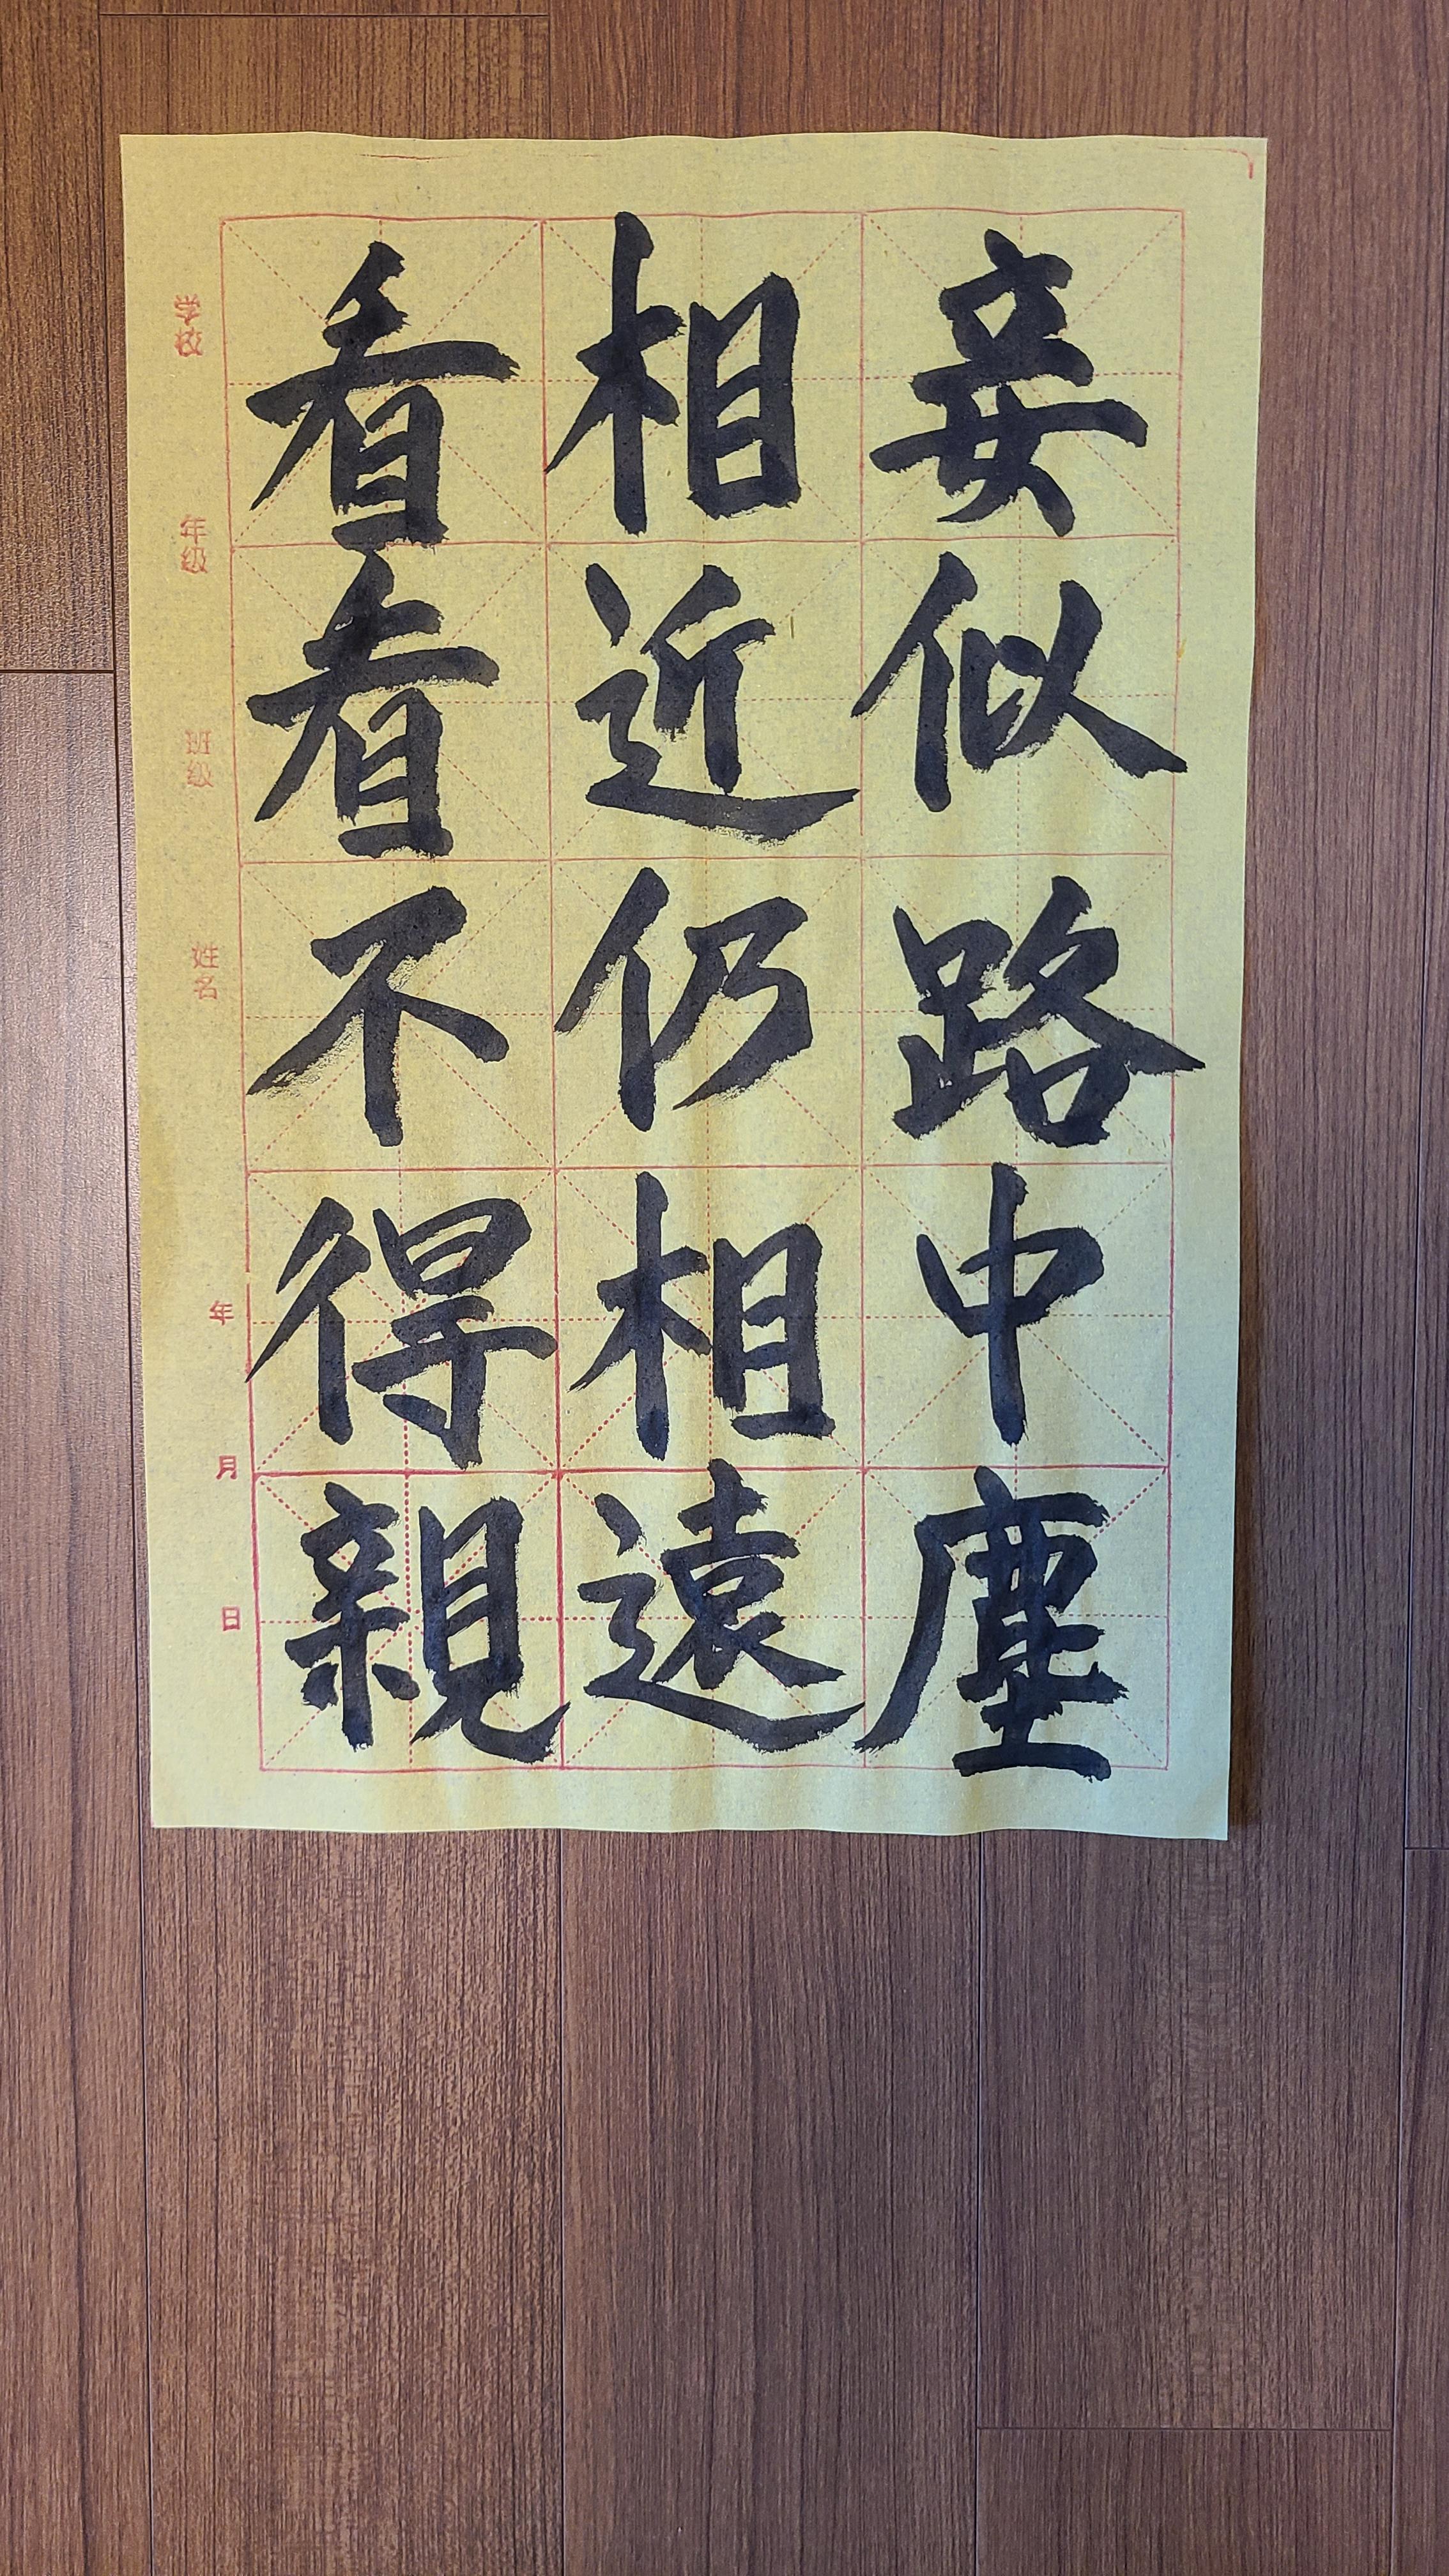 妾似路中塵
相近仍相遠
看看不得親
学校
年级
班级
姓名
年
月
日